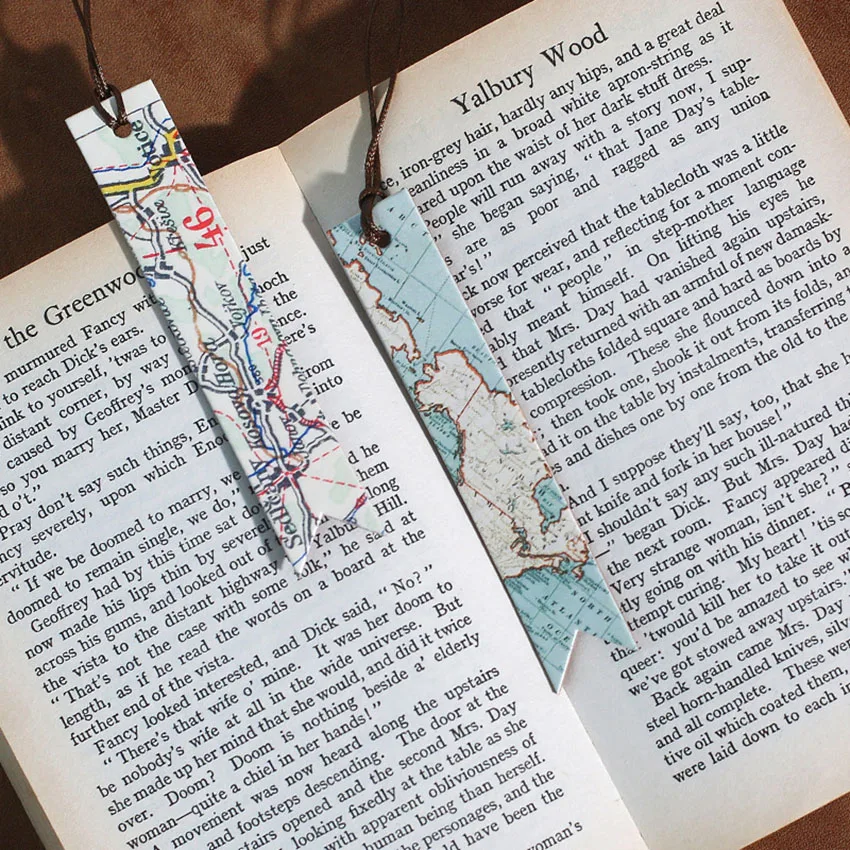 the Greenwoo
just
murmured Fancy
to reach Dick's ears.
ink to yourself, 'twas to
distant corner, by way
caused by Geoffrey's
so you marry her, Master D
d o't."
Pray don't say such things, En
ncy severely, upon which Eno
rvitude.
"If we be doomed to marry, we
doomed to remain single, we do,"
Geoffrey had by this time sat do
now made his lips thin by seve
across his gums, and looked out of
the vista to the distant highway
"That's not the case with some folk," he said at
length, as if he read the words on a board at the
further end of the vista.
Fancy looked interested, and Dick said, "No?"
"There's that wife o' mine. It was her doom to
be nobody's wife at all in the wide universe. But
she made up her mind that she would, and did it twice
over. Doom? Doom is nothing beside a' elderly
woman—quite a chiel in her hands!"
A movement was now heard along the upstairs
and footsteps descending. The door at the
stairs opened and the second Mrs. Day
looking fixedly at the table as she
with apparent obliviousness of
human being than herself.
the personages, and the
ld have been the
woman's
the
into
be
he
them
long
Yalbury Hill.
Yalbury Wood
iron-grey hair, hardly any hips, and a great deal
eanliness in a broad white apron-string as it
ared upon the waist of her dark stuff dress.
eople will run away with a story now, I sup-
she began saying, "that Jane Day's table-
are as poor and ragged as any union
r's!"
k now perceived that the tablecloth was a little
orse for wear, and reflecting for a moment con-
d that "people" in step-mother language
ably meant himself. On lifting his eyes he
that Mrs. Day had vanished again upstairs,
resently returned with an armful of new damask-
tablecloths folded square and hard as boards by
compression. These she flounced down into a
then took one, shook it out from its folds, an
d it on the table by instalments, transferring
s and dishes one by one from the old to the
And I suppose they'll say, too, that she h
t knife and fork in her house!"
shouldn't say any such ill-natured th
—" began Dick. But Mrs. Day had
the next room. Fancy appeared di
Very strange woman, isn't she?"
tly going on with his dinner.
ttempt curing. My heart! 'tis so
that 'twould kill her to take it out
queer: you'd be amazed to see wh
we've got stowed away upstairs."
Back again came Mrs. Day
steel horn-handled knives, silv
and all complete. These were
tive oil which coated them,
were laid down to each in
46
19
NORTH
ATLAN
OCE